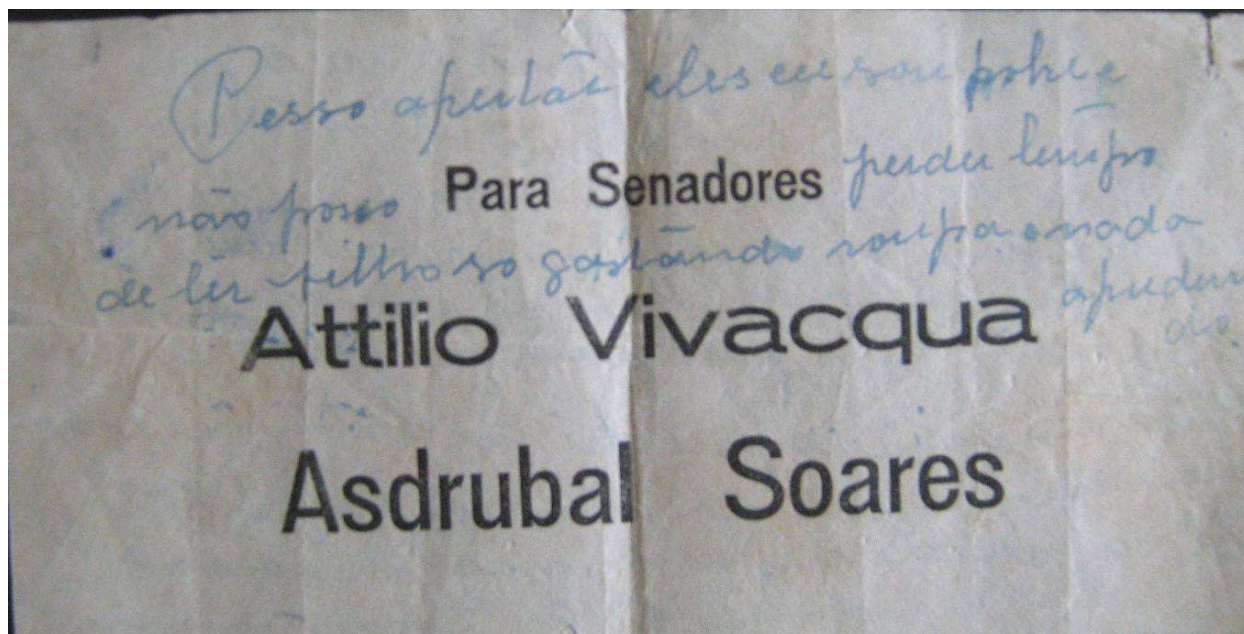 Pesso apertãi eles eu sou pobre
não posso Para Senadores perder tempo
de ter filho so gastando roupa enada
Attilio Vivacqua apriden
do
Asdrubal Soares